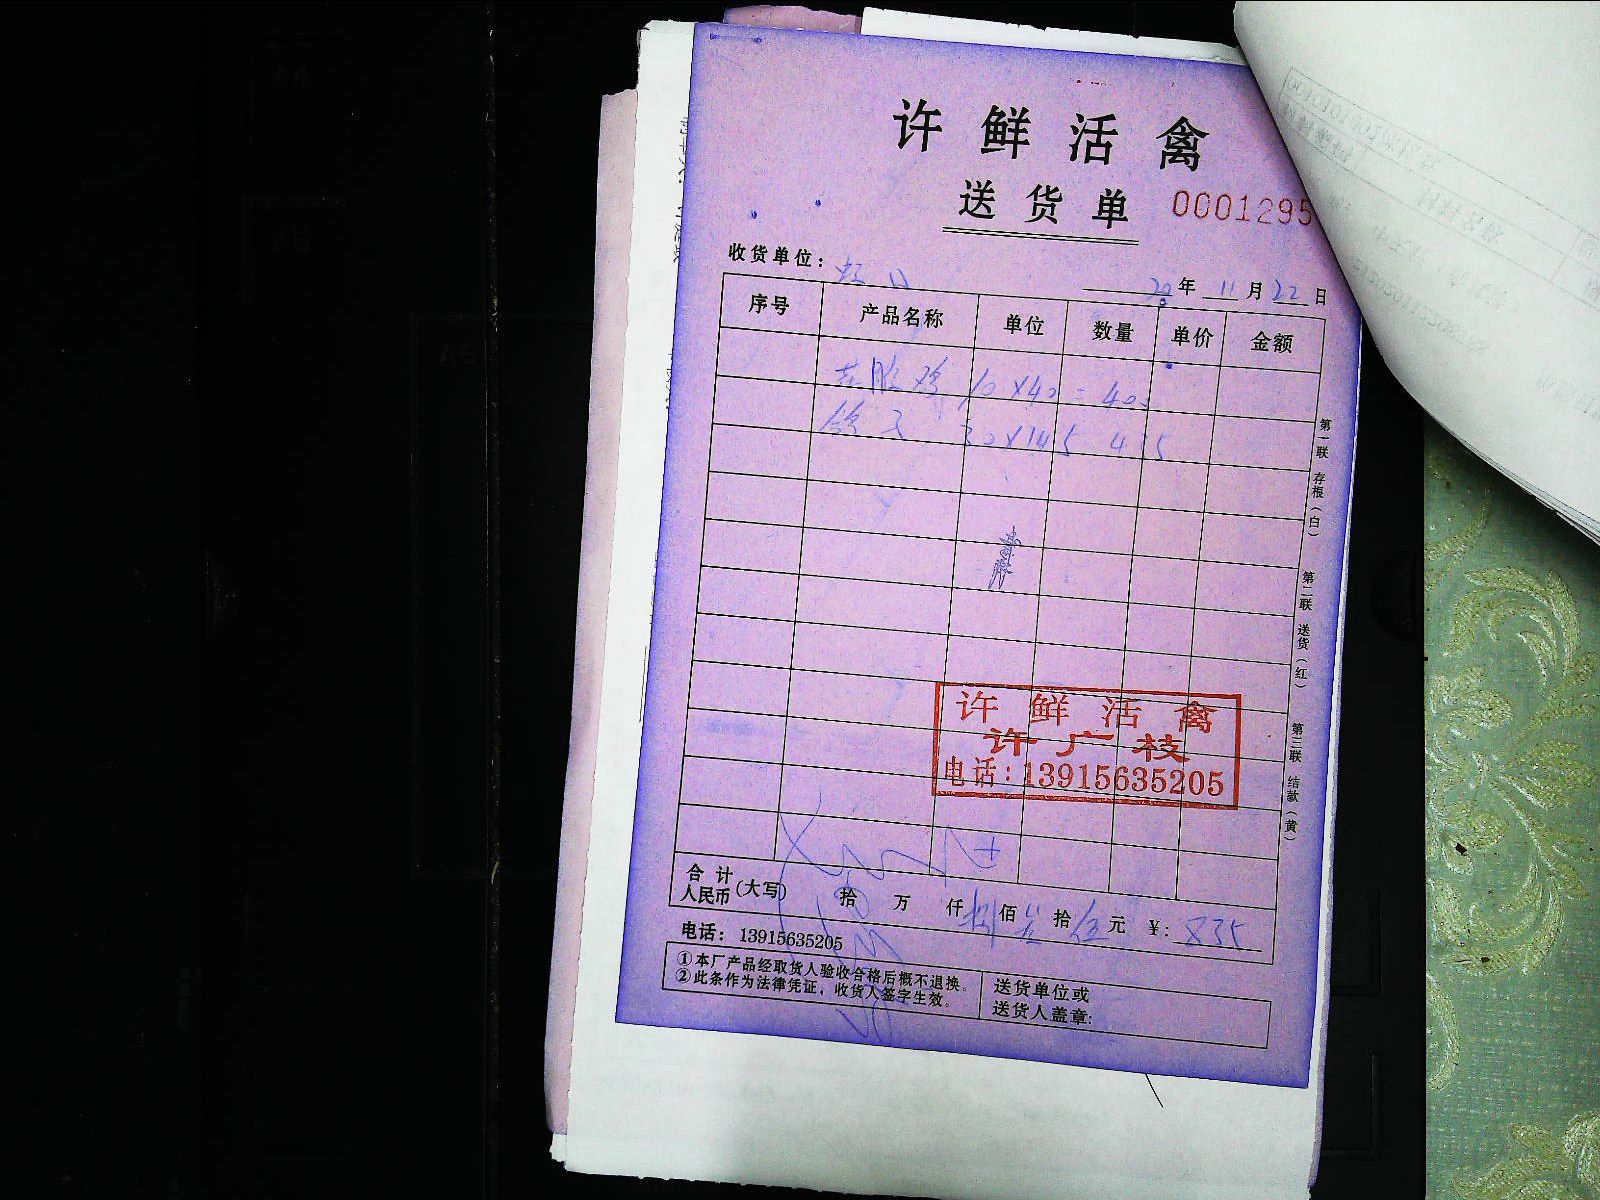 许鲜活禽
送货单 0001295
收货单位：
20年 11月 22日
序号 产品名称 单位 数量 单价 金额
鸡 10×40=400
30×14.5 435
第一联 存根（白） 第二联 送货（红） 第三联 结款（黄）
许鲜活禽
许广枝
电话：13915635205
合计人民币(大写) 拾 万 仟 捌 佰 叁 拾 伍 元 ￥：835
电话：13915635205
①本厂产品经取货人验收合格后概不退换。
②此条作为法律凭证，收货人签字生效。
送货单位或
送货人盖章：